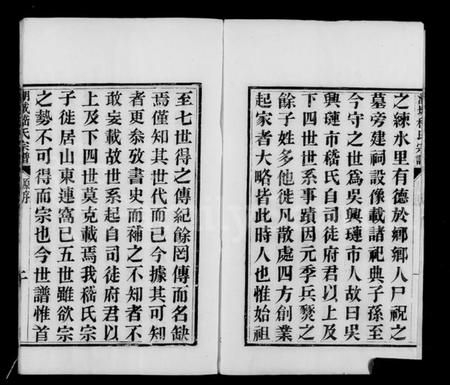 之練水里有德於鄉鄉人尸祝之
墓旁建祠設像載諸祀典子孫至
今守之世爲吳興璉市人故曰吳
興璉市嵇氏自司徒府君以上及
下四世世系事蹟因元季兵燹之
餘子姓多他徙凡散處四方創業
起家者大略皆此時人也惟始祖
至七世得之傳紀餘罔傳而名缺
焉僅知其世代而已今據其可知
者更叅攷書史而補之不知者不
敢妄載故世系起自司徒府君以
上及下四世莫克載焉我嵇氏宗
子徙居山東連窩已五世雖欲宗
之勢不可得而宗也今世譜惟首
嵇氏宗譜
原序